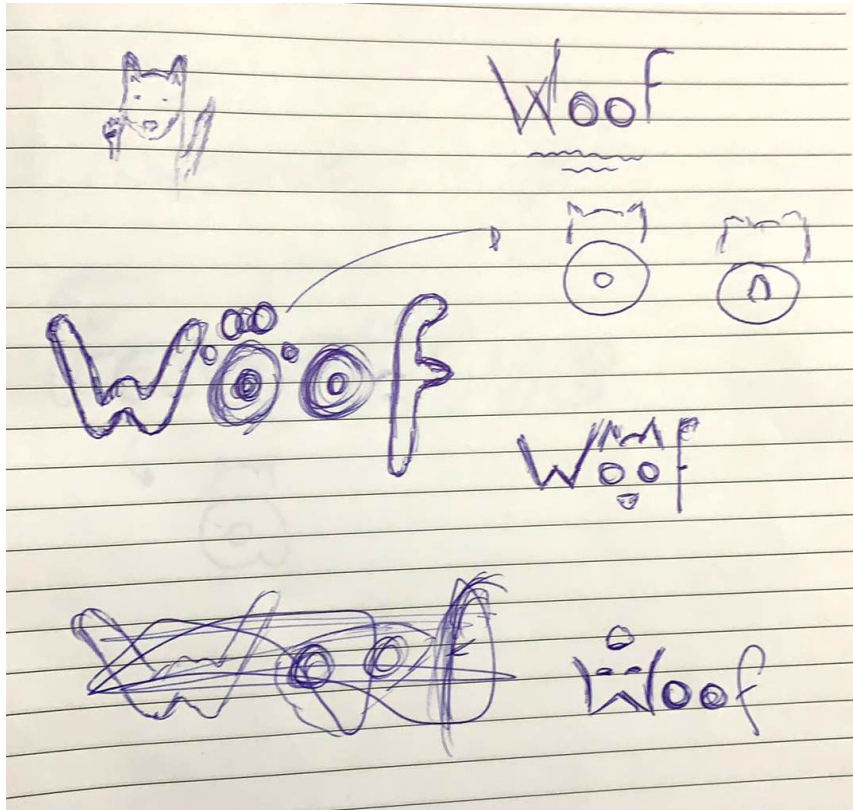 Woof
Woof
Woof
Woof
Woof